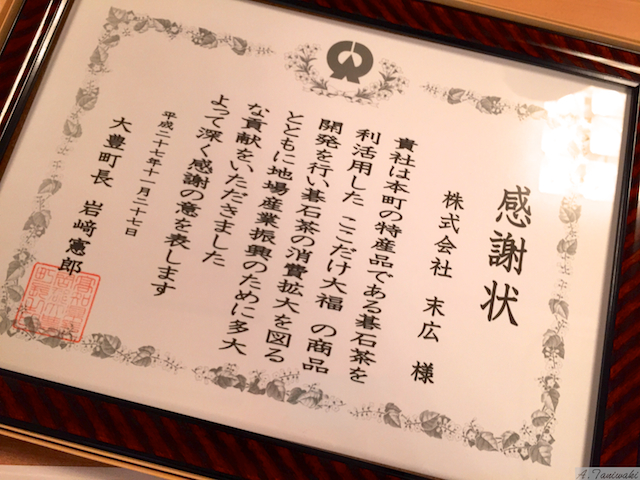 感謝状
株式会社 末広 様
貴社は本町の特産品である碁石茶を
利活用した ここだけ大福 の商品
開発を行い碁石茶の消費拡大を図る
とともに地場産業振興のために多大
な貢献をいただきました
よって深く感謝の意を表します
平成二十七年十一月二十七日
大豊町長 岩﨑憲郎
A.Taniwaki